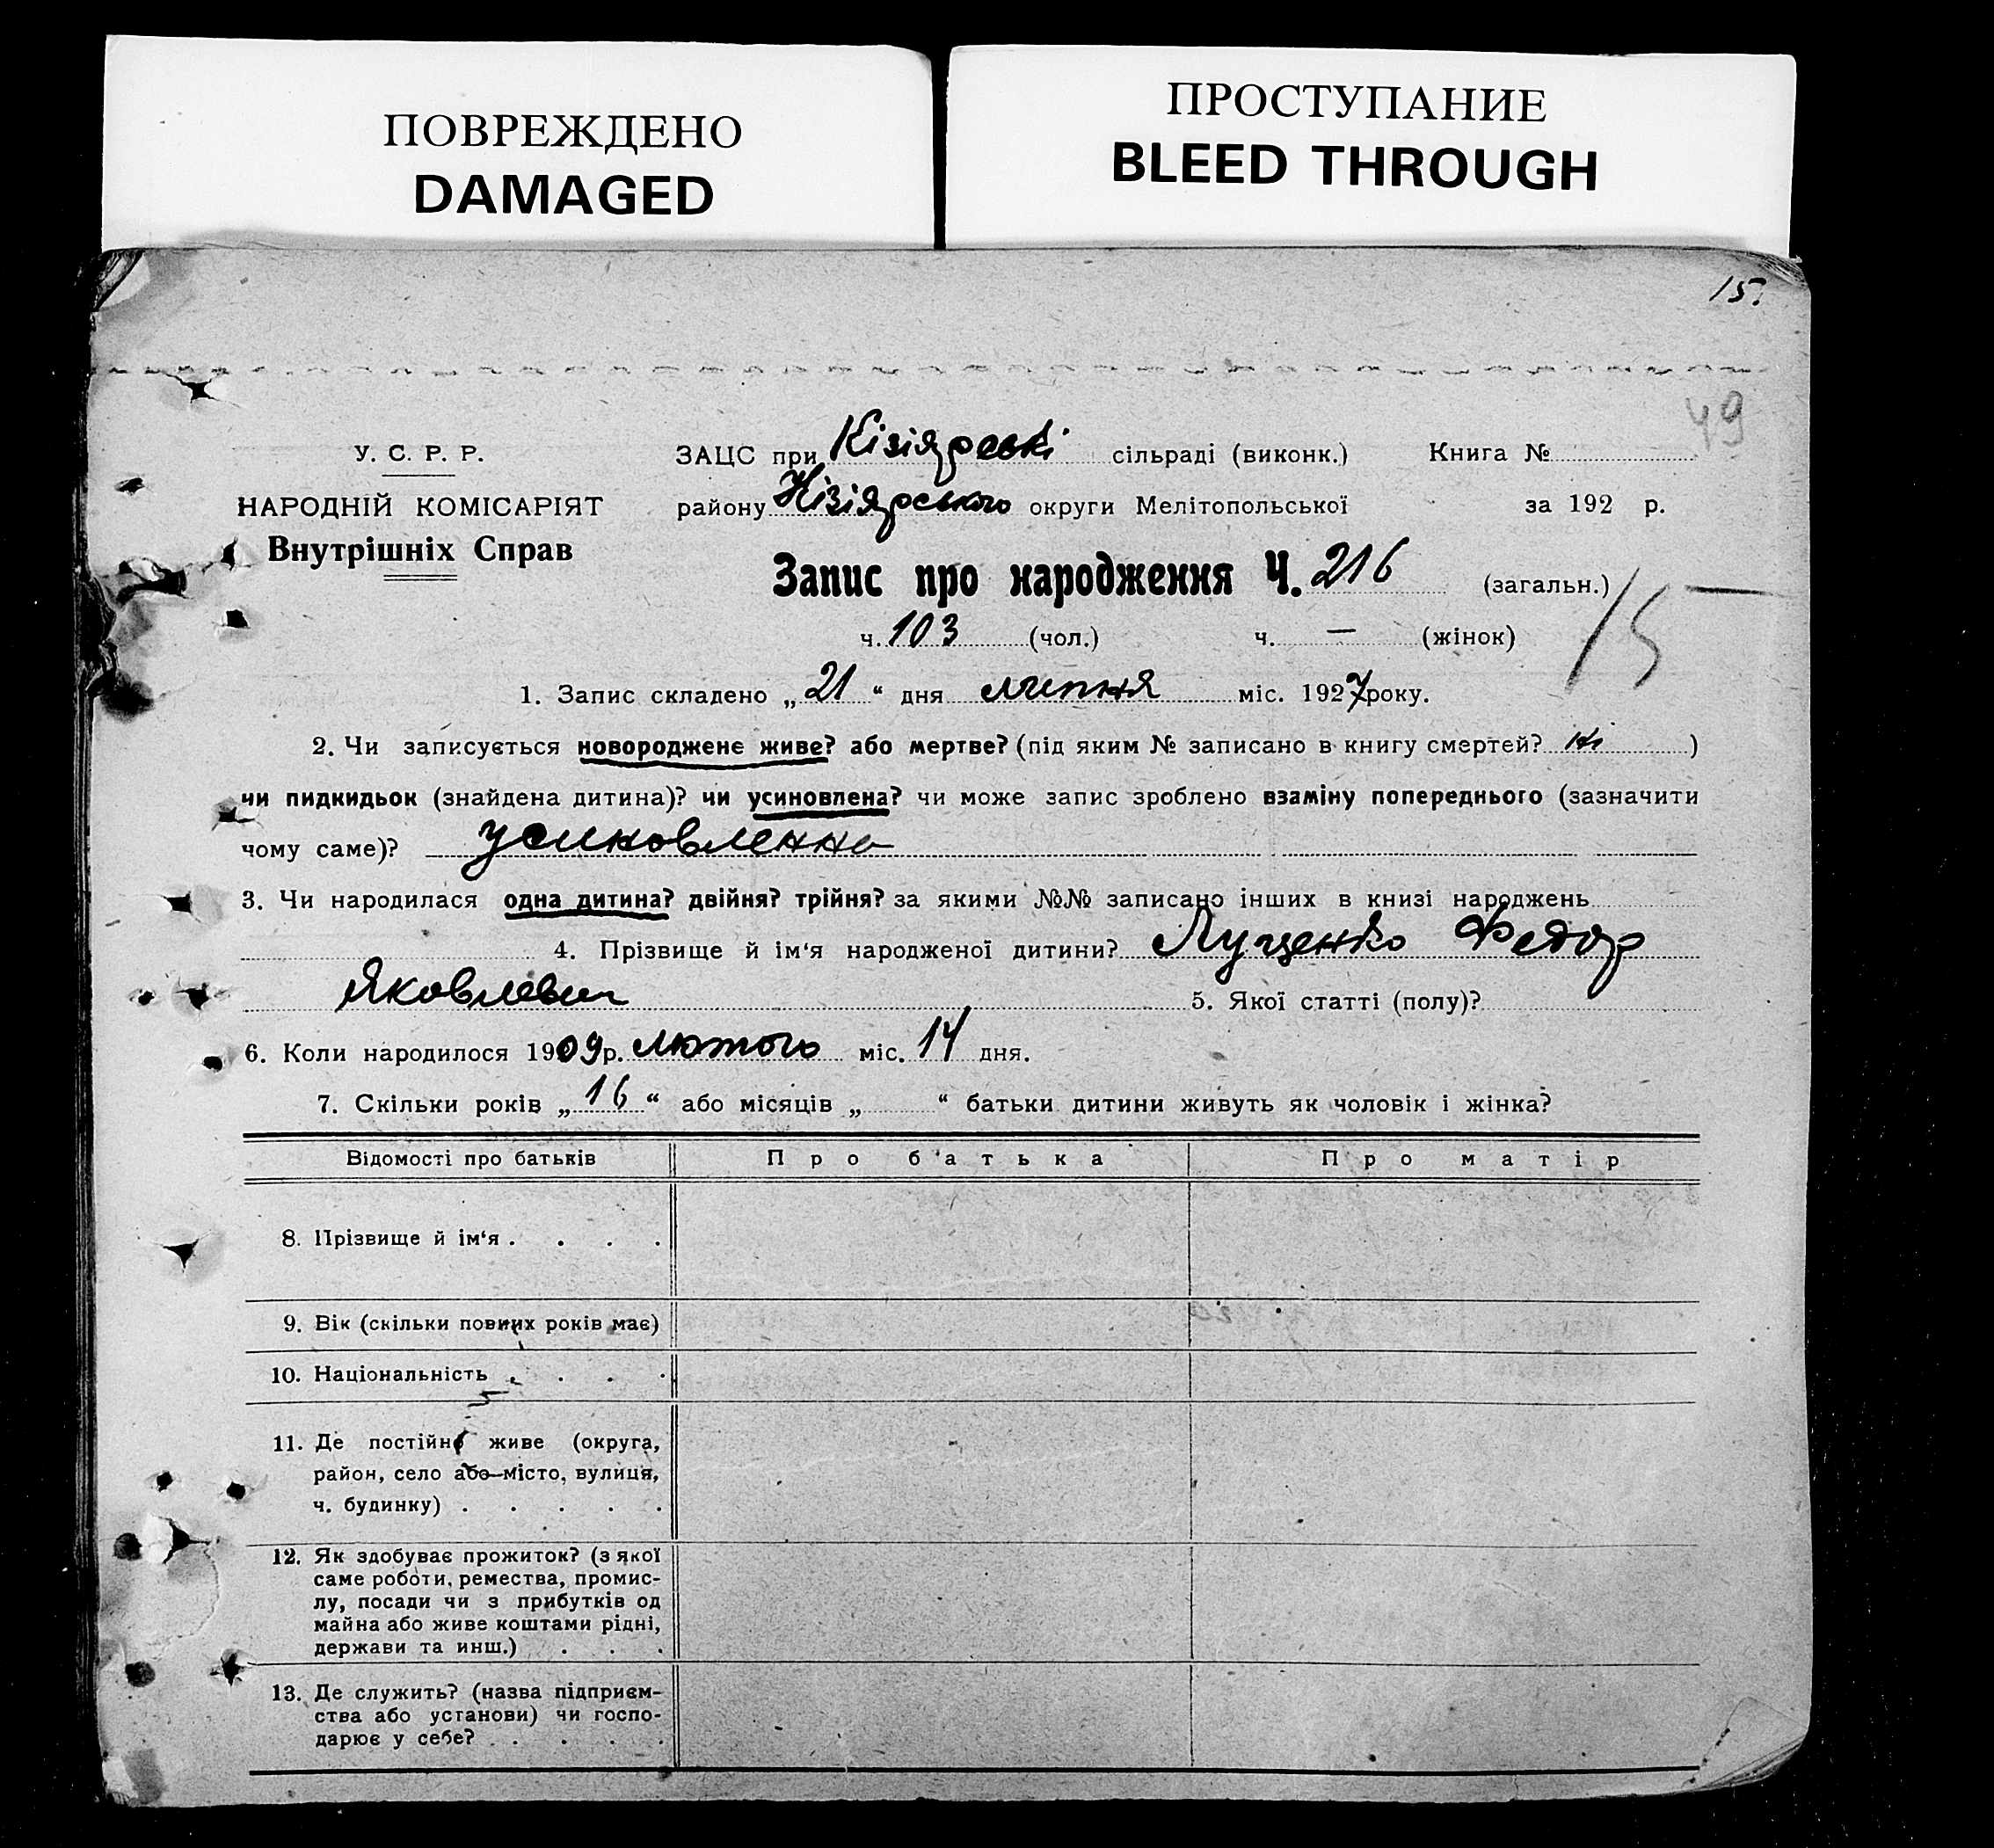 ПОВРЕЖДЕНО
DAMAGED
ПРОСТУПАНИЕ
BLEED THROUGH
15.
49
У. С. Р. Р.
НАРОДНІЙ КОМІСАРІЯТ
Внутрішніх Справ
ЗАЦС при Кізіярські сільраді (виконк.) Книга №
району Кізіярського округи Мелітопольської за 192 р.
Запис про народження Ч. 216 (загальн.)
15
ч. 103 (чол.) ч. — (жінок)
1. Запис складено „ 21 “ дня липня міс. 1927 року.
2. Чи записується новороджене живе? або мертве? (під яким № записано в книгу смертей? ні )
чи пидкидьок (знайдена дитина)? чи усиновлена? чи може запис зроблено взаміну попереднього (зазначити
чому саме)? усиновленно
3. Чи народилася одна дитина? двійня? трійня? за якими №№ записано інших в книзі народжень
4. Прізвище й ім‘я народженої дитини? Луценко Федор
Яковлевич 5. Якої статті (полу)?
6. Коли народилося 1909 р. лютого міс. 14 дня.
7. Скільки років „ 16 “ або місяців „ “ батьки дитини живуть як чоловік і жінка?
Відомості про батьків Про б‘атька Про матір
8. Прізвище й ім‘я . . . .
9. Вік (скільки повних років має)
10. Національність . . . .
11. Де постійно живе (округа,
район, село або місто, вулиця,
ч. будинку) . . . . .
12. Як здобуває прожиток? (з якої
саме роботи, ремества, промис-
лу, посади чи з прибутків од
майна або живе коштами рідні,
держави та инш.) . . .
13. Де служить? (назва підприєм-
ства або установи) чи госпо-
дарює у себе? . . . .